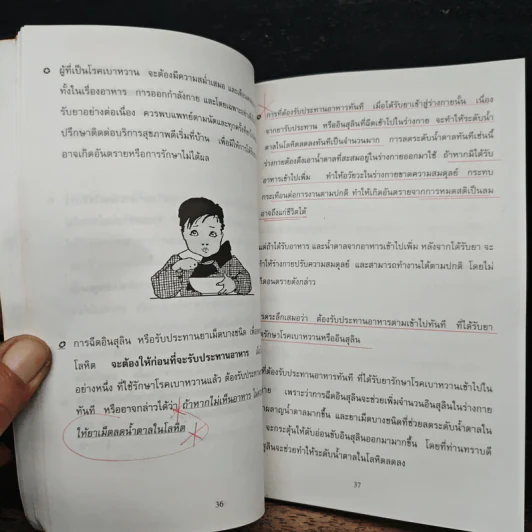 ผู้ที่เป็นโรคเบาหวาน จะต้องมีความสม่ำเสมอ
ทั้งในเรื่องอาหาร การออกกำลังกาย และโดยเฉพาะ
รับยาอย่างต่อเนื่อง ควรพบแพทย์ตามนัดและทุกครั้ง
ปรึกษาติดต่อบริการสุขภาพดีเริ่มที่บ้าน เพื่อมิให้
อาจเกิดอันตรายหรือการรักษาไม่ได้ผล
การฉีดอินสุลิน หรือรับประทานยาเม็ดบางชนิด
โลหิต จะต้องให้ก่อนที่จะรับประทานอาหาร
อย่างหนึ่ง ที่ใช้รักษาโรคเบาหวานแล้ว ต้องรับประทาน
ทันที หรืออาจกล่าวได้ว่า ถ้าหากไม่เห็นอาหาร
ให้ยาเม็ดลดน้ำตาลในโลหิต
36
การที่ต้องรับประทานอาหารทันที เมื่อได้รับยาเข้าสู่ร่างกายนั้น เนื่อง
จากยารับประทาน หรืออินสุลินที่ฉีดเข้าไปในร่างกาย จะทำให้ระดับน้ำ
ตาลในโลหิตลดลงทันทีเป็นจำนวนมาก การลดระดับน้ำตาลทันทีเช่นนี้
ร่างกายต้องดึงเอาน้ำตาลที่สะสมอยู่ในร่างกายออกมาใช้ ถ้าหากมิได้รับ
อาหารเข้าไปเพิ่ม ทำให้อวัยวะในร่างกายขาดความสมดุลย์ กระทบ
กระเทือนต่อการงานตามปกติ ทำให้เกิดอันตรายจากการหมดสติเป็นลม
อาจถึงแก่ชีวิตได้
แต่ถ้าได้รับอาหาร และน้ำตาลจากอาหารเข้าไปเพิ่ม หลังจากได้รับยา จะ
ทำให้ร่างกายปรับความสมดุลย์ และสามารถทำงานได้ตามปกติ โดยไม่
เกิดอันตรายดังกล่าว
ควรระลึกเสมอว่า ต้องรับประทานอาหารตามเข้าไปทันที ที่ได้รับยา
รักษาโรคเบาหวานหรืออินสุลิน
ที่ต้องรับประทานอาหารทันที ที่ได้รับยารักษาโรคเบาหวานเข้าไปใน
เพราะว่าการฉีดอินสุลินจะช่วยเพิ่มจำนวนอินสุลินในร่างกาย
มากขึ้น และยาเม็ดบางชนิดที่ช่วยลดระดับน้ำตาลใน
จะกระตุ้นให้ตับอ่อนขับอินสุลินออกมามากขึ้น โดยที่ท่านทราบดี
สุลินจะช่วยทำให้ระดับน้ำตาลในโลหิตลดลง
37